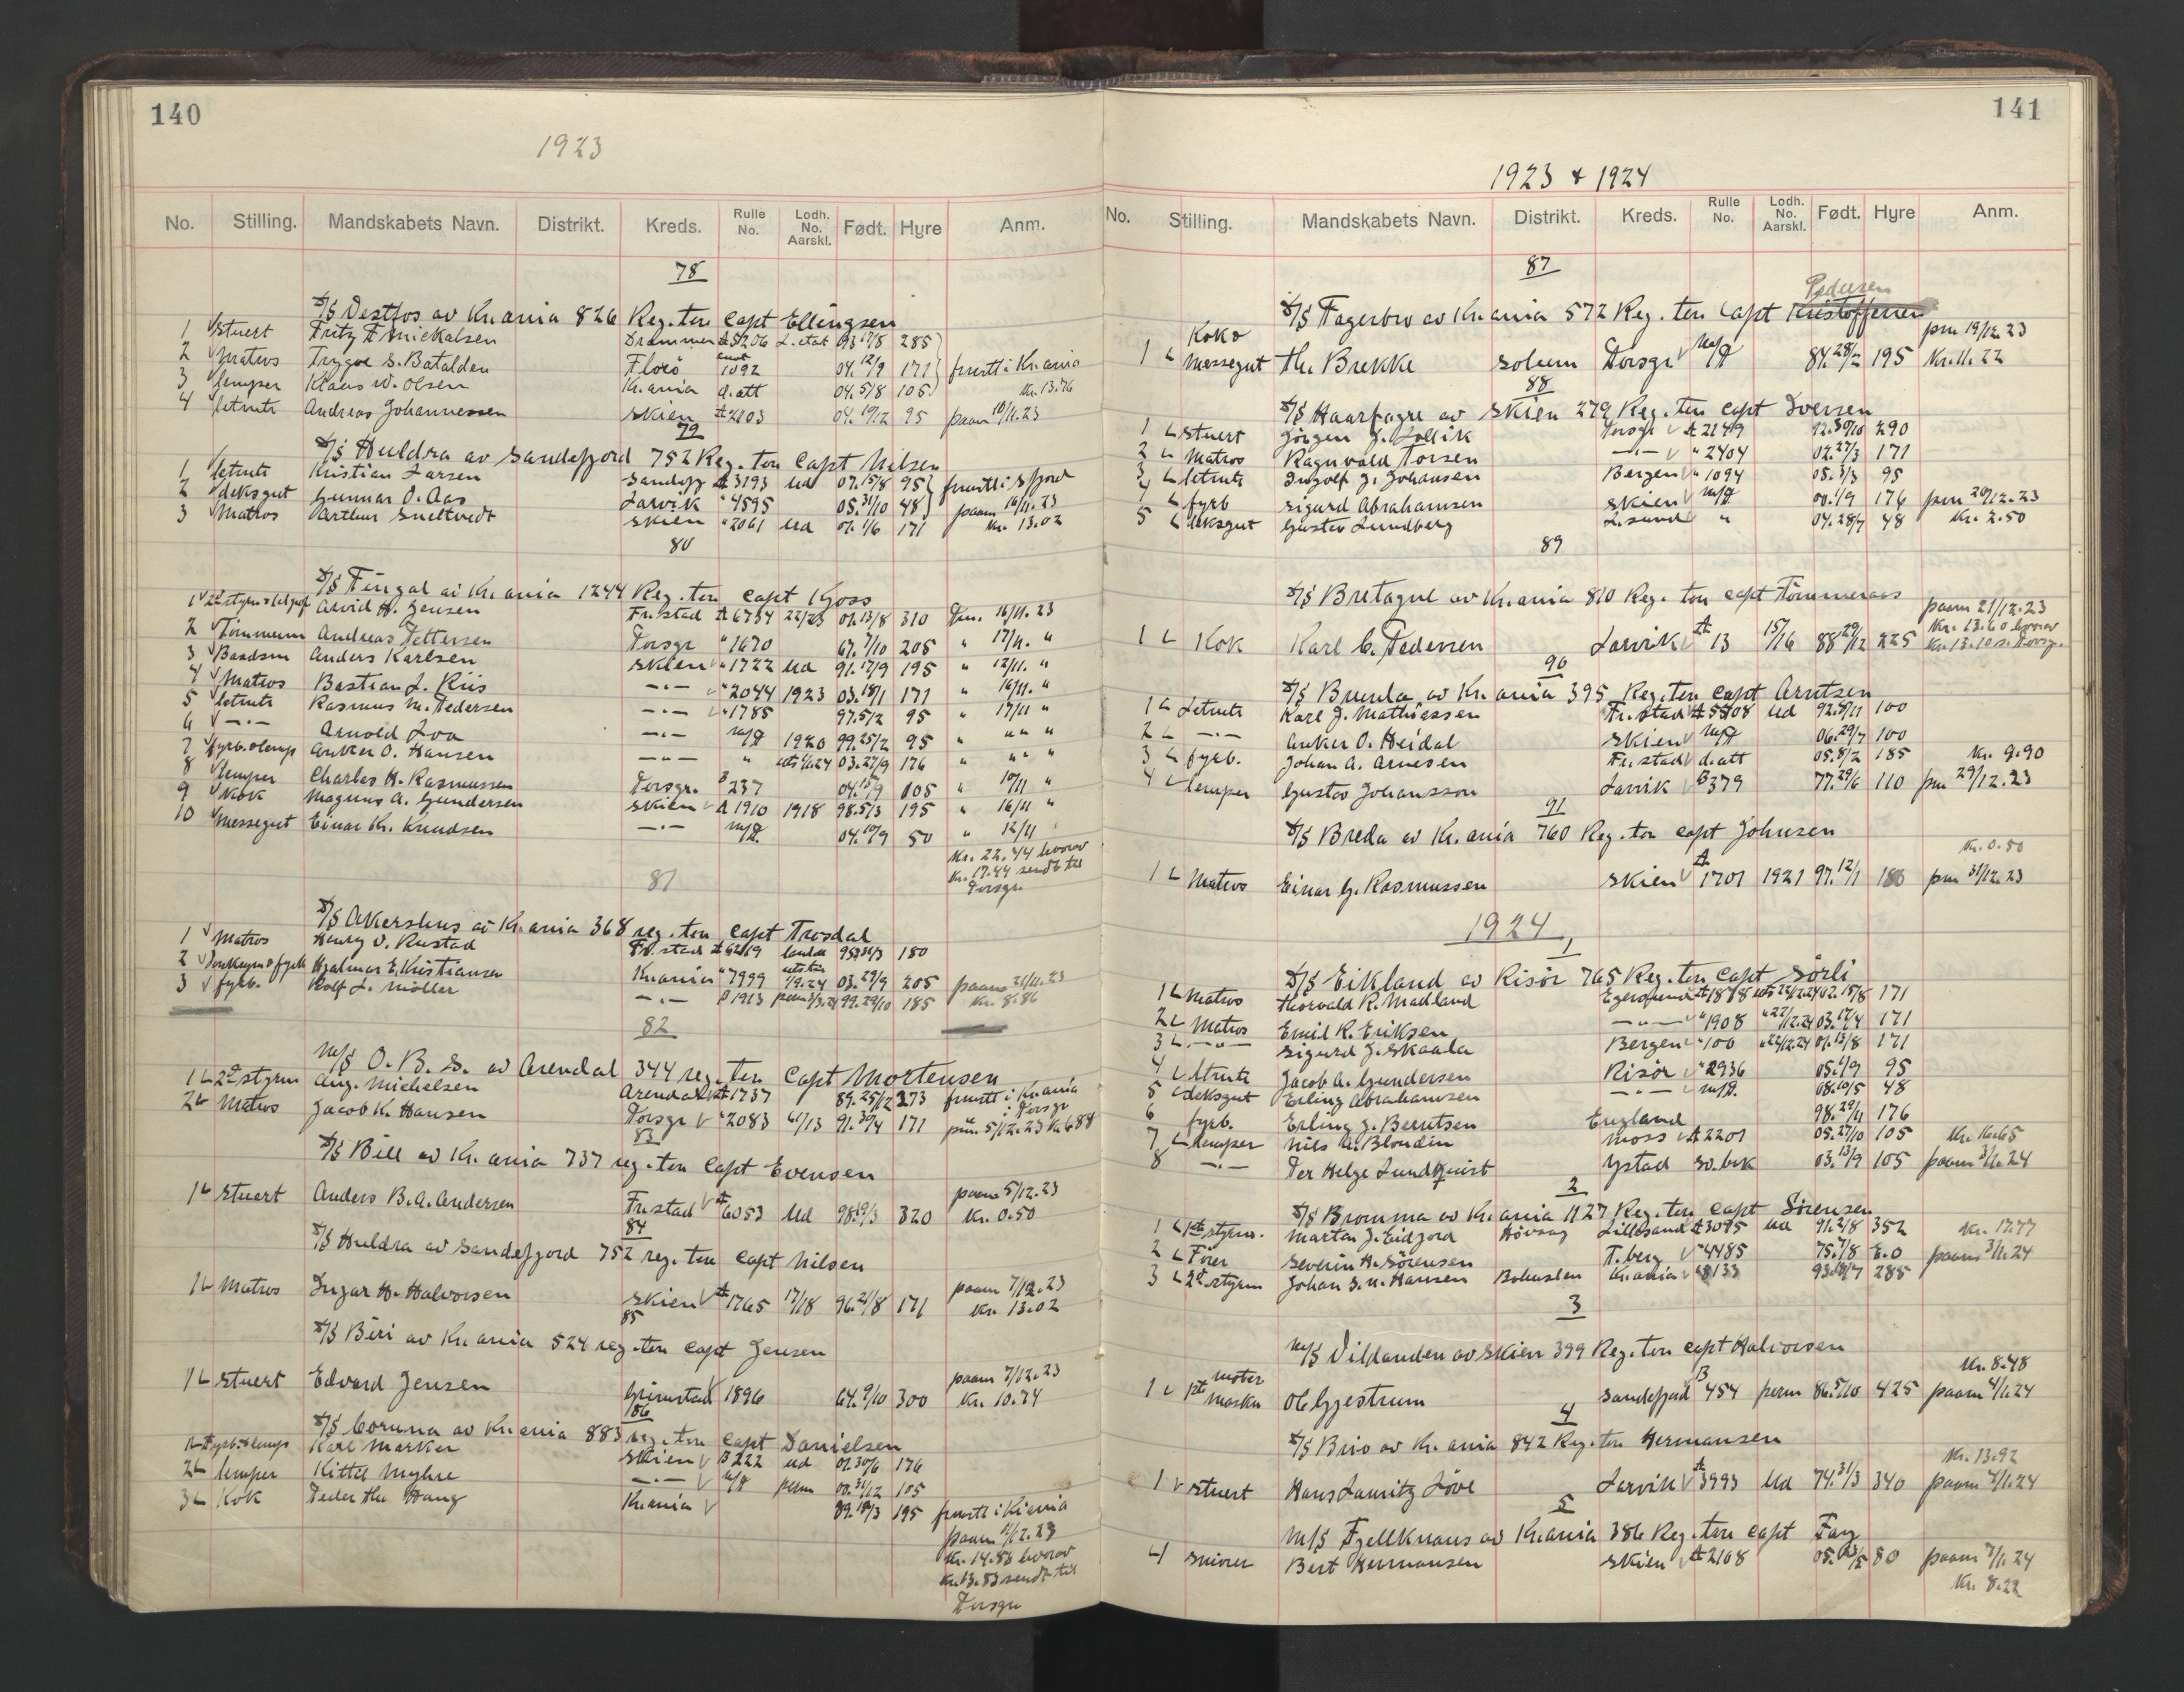 140
1923
No. Stilling. Mandskabets Navn. Distrikt. Kreds. Rulle No. Lodh. No. Aarskl. Født. Hyre Anm.
78
S/S Vestfos av Kr.ania 826 Reg. ton Capt Ellingsen
1 stuert Fritz F. Mickalsen Drammen A 5206 93 17/8 285
2 Matros Trygve S. Batalden Florö 1092 04. 12/9 171 fmstt i Kr.ania
3 lemper Klaus W. Olsen Kr.ania d.att 04. 5/8 105 Kr. 13.76
4 letmtr Andreas Johannessen Skien A 2103 04. 19/12 95 paam 10/11.23
79
S/S Huldra av Sandefjord 752 Reg. ton Capt Nilsen
1 letmtr Kristian Larsen Sandefj A 3193 Ud 07. 15/8 95 fmstt i Sfjord
2 deksgut Gunnar O. Aas Larvik " 4595 05. 31/10 48 paam 16/11.23
3 Matros Arthur Sneltvedt Skien " 2061 Ud 01. 1/6 171 Kr. 13.02
80
S/S Fingal av Kr.ania 1244 Reg. ton Capt Kjoss
1 2 styrm & telegraf Arvid H. Jensen Fr.stad A 6734 22/23 01. 13/8 310 Pm. 16/11.23
2 Tömmerm Andreas Pettersen Porsgr " 1670 67. 7/10 205 " 17/11. "
3 Baadsm Anders Karlsen Skien " 1722 Ud 91. 17/9 195 " 12/11. "
4 Matros Bastian L. Riis -"- " 2044 1923 03. 18/1 171 " 16/11. "
5 letmtr Rasmus M. Pedersen -"- " 1785 97. 5/2 95 " 17/11 "
6 -"- Arnold Loa -"- m/p 1920 99. 25/2 95 " " " "
7 fyrb. o lemp Anker O. Hansen -"- " uts 1/1.24 03. 27/9 176 " " " "
8 lemper Charles H. Rasmussen Porsgr. B 237 04. 15/9 105 " 10/11 "
9 Kok Magnus A. Gundersen Skien A 1910 1918 98. 5/3 195 " 16/11 "
10 messegut Einar Kr. Knudsen -"- m/p. 04. 10/9 50 " 12/11 "
Kr. 22.44 hvorav
Kr. 17.44 sendt til
Porsgr.
81
S/S Akershus av Kr.ania 368 reg. ton Capt Trosdal
1 Matros Henry O. Rustad Fr. stad A 6219 180
2 Donkeym & fyrb Hjalmar E. Kristiansen Kr.ania " 7999 uts til 1/9.24 03. 29/9 205 paam 21/11.23
3 fyrb. Rolf L. Möller -"- B 1913 perm 3/3.24 99. 29/10 185 Kr. 8.86
82
M/S O. B. S. av Arendal 344 reg. ton Capt Mortensen
1 2d styrm Aug. Michelsen Arendal A 1737 89. 25/12 273 fmstt i Kr.ania
2 Matros Jacob K. Hansen Porsgr " 2083 61/13 91. 30/4 171 i Porsgr pm. 5/12.23 Kr 6.88
83
S/S Bill av Kr.ania 737 reg. ton Capt Evensen
1 stuert Anders B. A. Andersen Fr.stad A 6053 Ud 98. 19/3 320 paam 5/12.23 Kr. 0.50
84
S/S Huldra av Sandefjord 752 reg. ton Capt Nilsen
1 Matros Ingar H. Halvorsen Skien A 1765 17/18 96. 21/8 171 paam 7/12.23 Kr. 13.02
85
S/S Biri av Kr.ania 524 reg. ton Capt Jensen
1 stuert Edvard Jensen Grimstad 1896 64. 9/10 300 paam 7/12.23 Kr. 10.74
86
S/S Coruna av Kr.ania 883 reg. ton Capt Danielsen
1 fyrb. & lemp Karl Marker Skien B 222 Ud 01. 30/6 176
2 lemper Kittil Myhre -"- m/p perm 00. 31/12 105
3 Kok Peder Chr Haug Kr.ania 89. 18/3 195 fmstt i Kr.ania
paam 11/12.23
Kr. 14.83 hvorav
Kr. 13.83 sendt til
Porsgr
141
1923 & 1924
No. Stilling. Mandskabets Navn. Distrikt. Kreds. Rulle No. Lodh. No. Aarskl. Født. Hyre Anm.
87
Pedersen
S/S Fagerbro av Kr.ania 572 Reg. ton Capt Kristoffersen
1 Kok o Messegut Th. Brekke Solum Porsgr m/p 84. 28/2 195 pm 19/12.23 Kr. 11.22
88
S/S Haarfagre av Skien 279 Reg. ton Capt Iversen
1 stuert Jörgen J. Lollik Porsgr A 2149 12. 30/10 290
2 Matros Ragnvald Torsen -"- " 2404 02. 27/3 171
3 letmtr Ingolf J. Johansen Bergen " 1094 05. 3/3 95
4 fyrb Sigurd Abrahamsen Skien m/p 00. 1/9 176 pm 20/12.23
5 deksgut Gustav Lundberg L.sund " 04. 28/7 48 Kr. 2.50
89
S/S Bretagne av Kr.ania 810 Reg. ton Capt Tömmeraas
1 Kok Karl C. Pedersen Larvik A 13 15/16 88 29/12 225 paam 21/12.23
Kr. 13.60 hvorav
Kr. 13.10 s. Porsgr.
90
S/S Brunla av Kr.ania 395 Reg. ton Capt Arntsen
1 Letmtr Karl J. Mathiassen Fr. stad A 5508 Ud 92. 5/11 100
2 -"- Anker O. Heidal Skien m/p 06. 29/7 100
3 fyrb. Johan A. Arnesen Fr.stad d.att 05. 8/2 185 Kr. 9.90
4 lemper Gustav Johansson Larvik B 379 77. 29/6 110 pm 29/12.23
91
S/S Breda av Kr.ania 760 Reg. ton Capt Johnsen
Kr. 0.50
1 Matros Einar G. Rasmussen Skien A 1701 1921 97. 12/1 180 pm 31/12.23
1924
1
S/S Eikland av Risör 765 Reg. ton Capt Sörli
1 Matros Thorvald R. Madland Egersund A 1878 uts 22/12.24 02. 15/8 171
2 Matros Emil R. Eriksen -"- " 1908 " 22/12.24 03. 17/4 171
3 -"- Sigurd J. Skaala Bergen " 100 " 22/12.24 01. 13/8 171
4 Ltmtr Jacob A. Gundersen Risör " 2936 05. 1/9 95
5 deksgut Erling Abrahamsen -"- m/p. 08. 10/5 48
6 fyrb. Erling J. Berntsen England 98. 29/11 176
7 lemper Nils A. Blondin Moss A 2201 05. 27/10 105 Kr. 16.65
8 -"- Per Helge Lundquist Ystad so. bok 03. 13/9 105 paam 3/1.24
2
S/S Bromma av Kr.ania 1127 Reg. ton Capt Sörensen
1 1st styrm. Martin J. Eidjord Hövaag Lillesand A 3095 Ud 91. 2/8 352 Kr. 17.77
2 Förer Severin H. Sörensen T.berg " 4485 75. 7/8 E.O paam 3/1.24
3 2d styrm Johan S. M. Hansen Bohuslen Kr.ania " 8133 285
3
M/S Vildanden av Skien 399 Reg. ton Capt Halvorsen
Kr. 8.48
1 1st motor maskn Ol Gjestrum Sandefjord B 454 perm 86. 5/10 425 paam 4/1.24
4
S/S Brio av Kr.ania 842 Reg. ton Hermansen
Kr. 13.92
1 stuert Hans Lauritz Löve Larvik A 3993 Ud 74. 31/3 340 paam 4/1.24
5
M/S Fjellknaus av Kr.ania 386 Reg. ton Capt Fay
4 smörer Bert Hermansen Skien A 2168 80 paam 7/1.24
Kr. 8.22